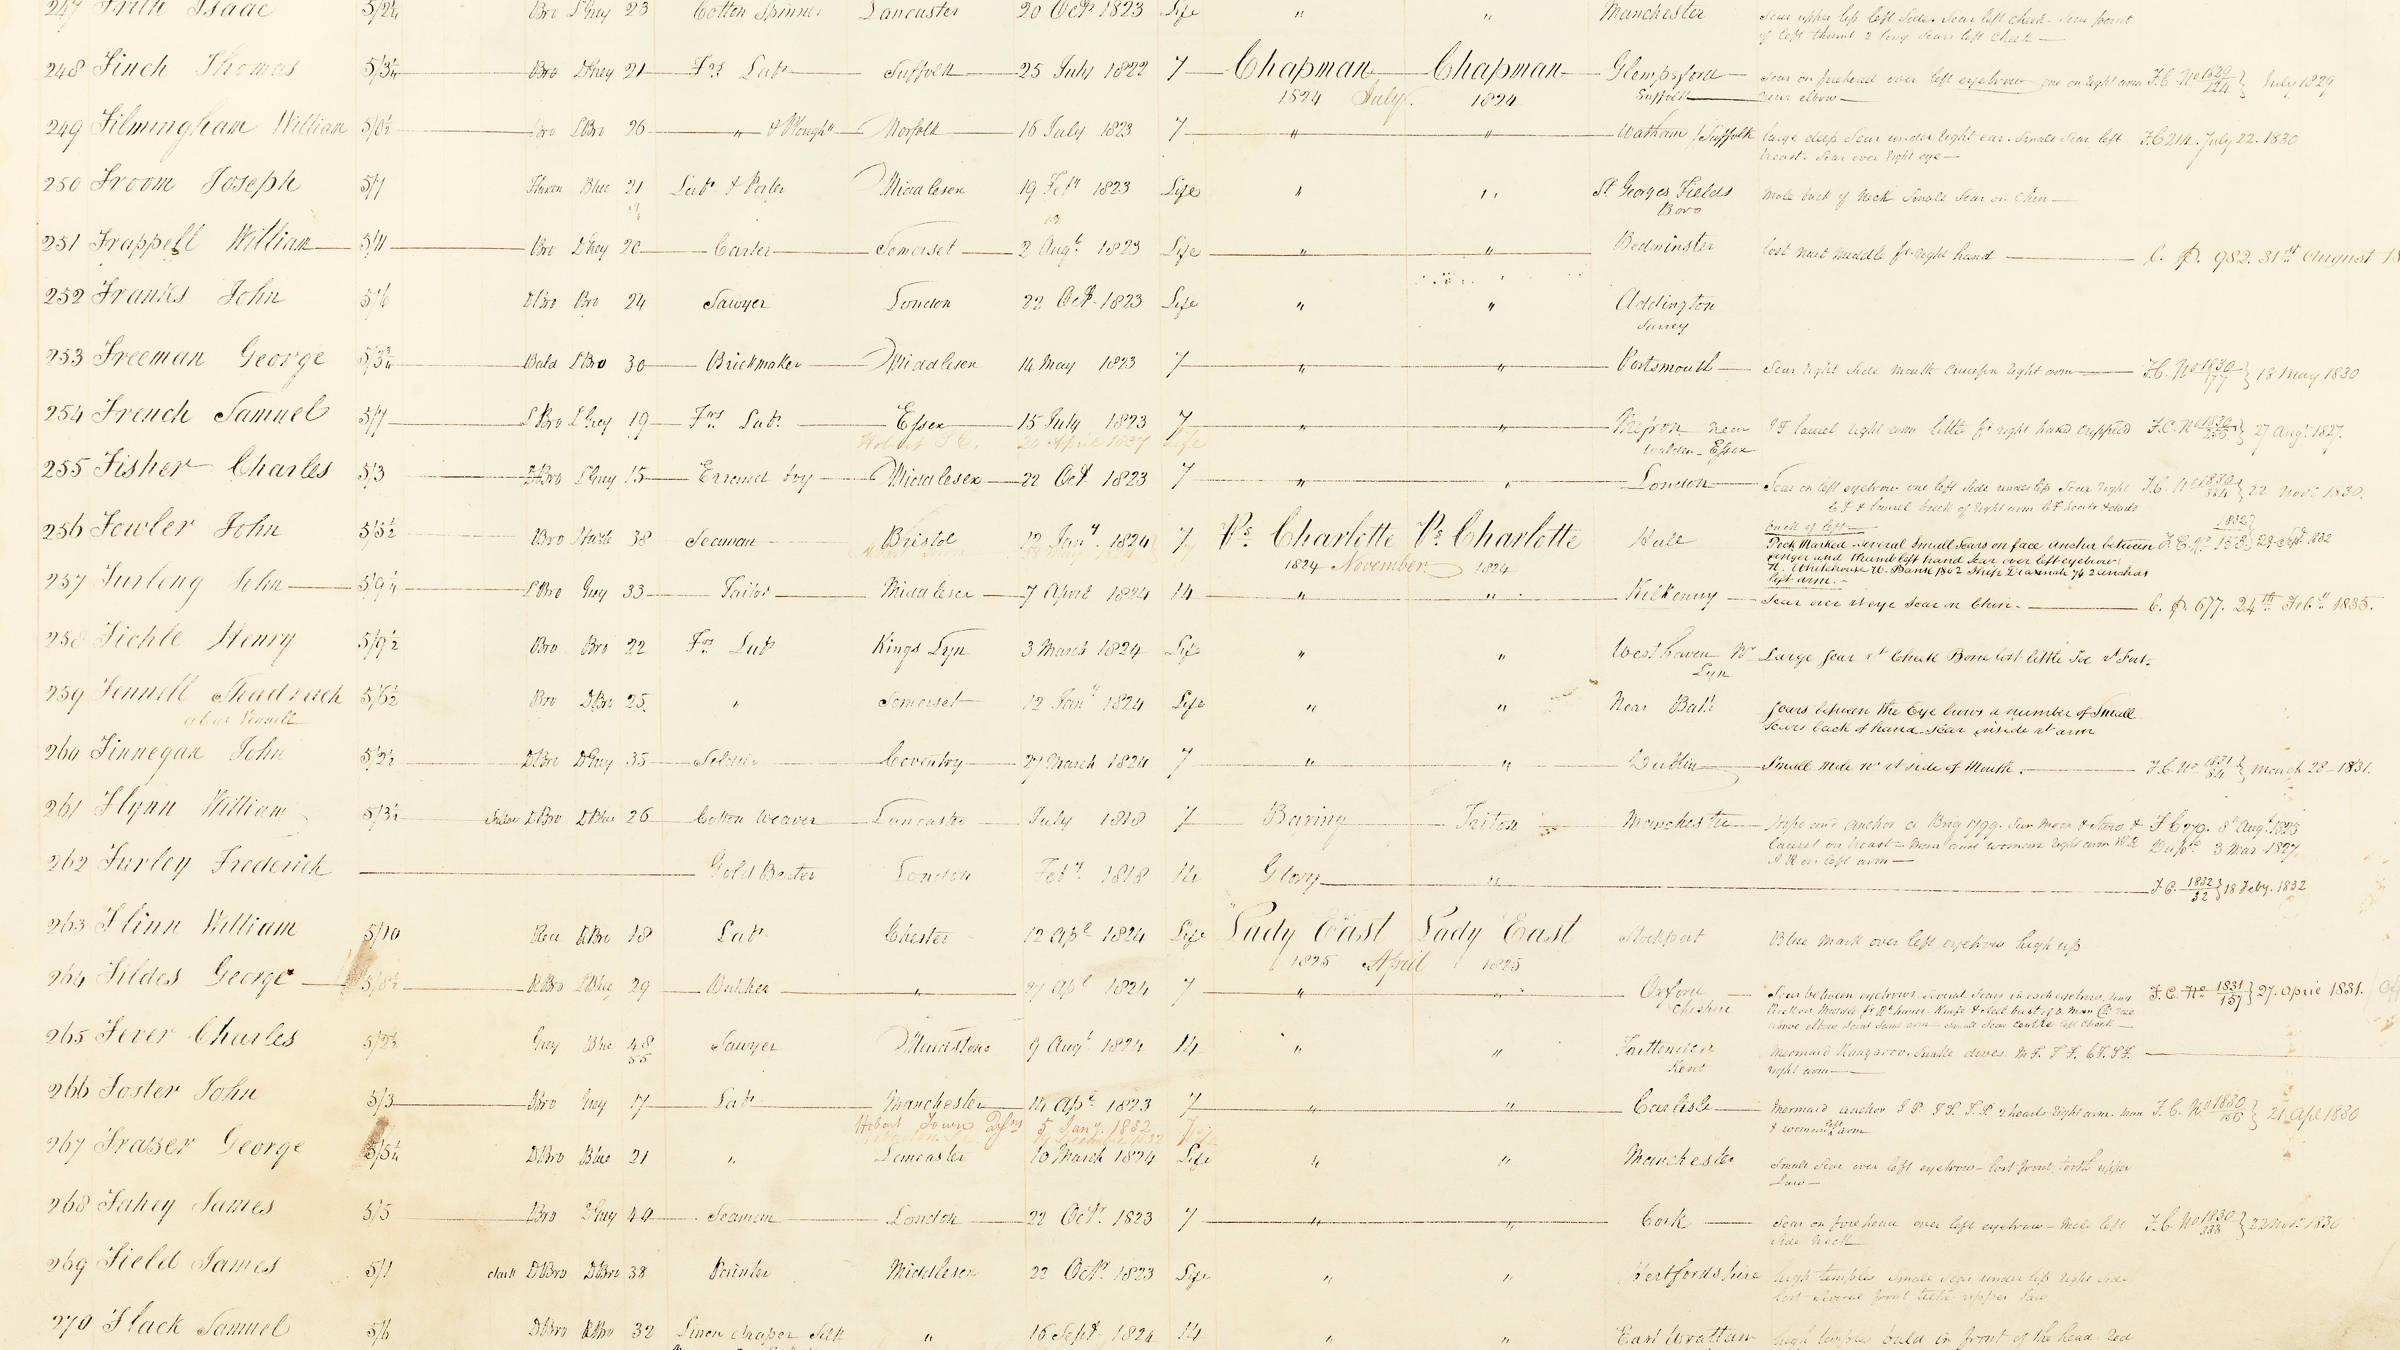 247 Frith Isaac 5/2¼ Bro LGrey 23 Cotton Spinner Lancaster 20 Octr 1823 Life " " Manchester Scar upper lip left side. Scar left cheek - Scar
of left thumb 2 long scars left cheek —
248 Finch Thomas 5/3¼ Bro DGrey 21 Frs Labr Suffolk 25 July 1822 7 Chapman Chapman Glemsford Scar on forehead over left eyebrow one on right arm F.C. No 1829/224 } July 1829
1824 July 1824 Suffolk near elbow —
249 Filmingham William 5/0½ Bro LBro 26 " & Plough Norfolk 16 July 1823 7 " " / Suffolk large deep Scar under right ear. Small Scar left F.C 214. July 22. 1830
breast. Scar over right eye —
250 Froom Joseph 5/7 Flaxen Blue 21 Labr & Porter Middlesex 19 Feby 1823 Life " " St Georges Fields Mole back of Neck Small Scar on Chin —
Boro
251 Frappell William 5/4 Bro DGrey 20 Carter Somerset 2 Augt 1823 Life " " Bedminster lost nail middle fr. right hand — C. P. 982. 31st August 18
252 Franks John 5/6 DBro Bro 24 Sawyer London 22 Oct. 1823 Life " " Addington
Surrey
253 Freeman George 5/3¾ Bald LBro 30 Brickmaker Middlesex 14 May 1823 7 " " Portsmouth Scar right side mouth right arm — F.C. No 1830/177 } 18 May 1830
254 French Samuel 5/7 LBro LGrey 19 Frs Labr Essex 15 July 1823 7 " " near laurel right arm little fr right hand crippled F.C. No 1830/ } 27 Augt 1827.
Hobart 20 April 1837 Life Walden - Essex
255 Fisher Charles 5/3 DBro LGrey 15 Errand boy Middlesex 22 Oct 1823 7 " " London Scar on left eyebrow one left side under lip Scar right F.C. No 1830/324 } 22 Novr 1830.
& laurel back of right arm hearts & darts
back of left —
256 Fowler John 5/5½ Bro Hazle 38 Seaman Bristol 12 Jany 1824 7 Ps. Charlotte Ps. Charlotte Hull Pock Marked - several Small Scars on face Anchor between F.C. No 1832/153 } 28 Sept 1832
1824 November 1824 finger and thumb left hand Scar over left eyebrow
Whitehouse Bank 1802 Ship 74 2 anchors
left arm. —
257 Furlong John 5/9¼ LBro Grey 33 Tailor Middlesex 7 April 1824 14 " " Kilkenny Scar over rt eye Scar on Chin. — C. P. 677. 24th Feby 1835.
258 Fickle Henry 5/9½ Bro Bro 22 Frs Labr Kings Lyn 3 March 1824 Life " " West haven Nr Large Scar rt Cheek Bone lost little Toe rt Foot.
Lyn
259 Fennell Shadrach 5/6½ Bro DBro 25. " Somerset 12 Jany 1824 Life " " Near Bath Scars between the Eye brows a number of Small
alias Pennell Scars back of hand Scar inside rt arm
260 Finnegan John 5/2½ DBro DGrey 35 Soldier Coventry 27 March 1824 7 " " Dublin Small Mole nr rt side of Mouth. — F.C. No 1831/34 } March 28 - 1831.
261 Flynn William 5/3½ Sallow DBro DBlue 26 Cotton Weaver Lancaster July 1818 7 Baring Triton Manchester and Anchor a Brig 1799. Sun Moon & Stars & F.C 279. 8 Augt 1825
laurel on breast - Man and woman right arm Duplte 3 Mar 1827
on left arm —
262 Furley Frederick Gold Beater London Feby 1818 14 Glory " F.C. 1832/32 } 18 Feby. 1832
263 Flinn William 5/10 Red DBro 18 Labr Chester 12 Apl 1824 Life Lady East Lady East Stockport Blue mark over left eyebrow high up
1825 April 1825
264 Fildes George 5/8½ DBro LBlue 29 Butcher " 27 Apl 1824 7 " " Scar between eyebrows several Scars in each eyebrow F.C. No 1831/157 } 27. April 1831.
Cheshire Middle fr Rt hand - Knife & steel bust of a Man
above elbow Scars same arm small Scar centre left cheek —
265 Fever Charles 5/2½ Grey Blue 48 Sawyer Maidstone 9 Augt 1824 14 " " Frittenden Mermaid Kangaroo. Snake doves. —
55 Kent right arm —
266 Foster John 5/3 Bro Grey 17 Labr Manchester 14 Apl 1823 7 " " Carlisle Mermaid anchor 2 hearts right arm. man F.C. No 1830/156 } 21 Apl 1830
Hobart Town 5 Jany. 1832 & woman left arm
267 Fraser George 5/5¼ DBro Blue 21 " Lancaster 10 March 1824 Life " " Manchester Small Scar over left eyebrow - lost front tooth upper
Jaw —
268 Fahey James 5/5 Bro DGrey 40 Seaman London 22 Octr. 1823 7 " " Cork Scar on forehead over left eyebrow - mole left F.C. No 1830/333 } 22 Novr 1830
side neck —
269 Field James 5/1 dark DBro DBro 38 Painter Middlesex 22 Octr 1823 Life " " Hertfordshire high temples small scar under lip right side
lost several front teeth upper Jaw
270 Flack Samuel 5/6 DBro DBro 32 Linen draper Silk " 16 Sept 1824 14 " " East high temples bald in front of the head Red